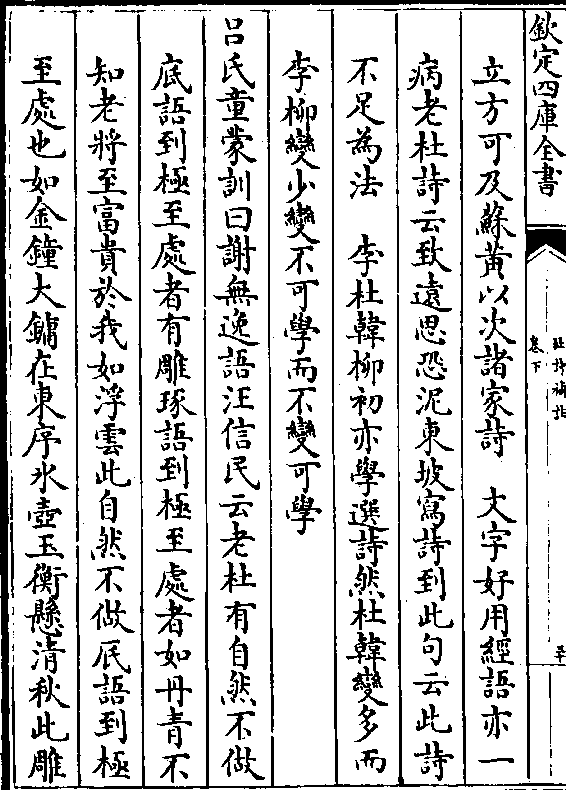 欽定四庫全書
卷下
立方可及蘇黃以次諸家詩　文字好用經語亦一
病老杜詩云致遠思恐泥東坡寫詩到此句云此詩
不足為法　李杜韓柳初亦學選詩然杜韓變多而
李柳變少變不可學而不變可學
呂氏童蒙訓曰謝無逸語汪信民云老杜有自然不做
底語到極至處者有雕琢語到極至處者如丹青不
知老將至富貴於我如浮雲此自然不做底語到極
至處也如金鐘大鏞在東序氷壺玉衡懸清秋此雕